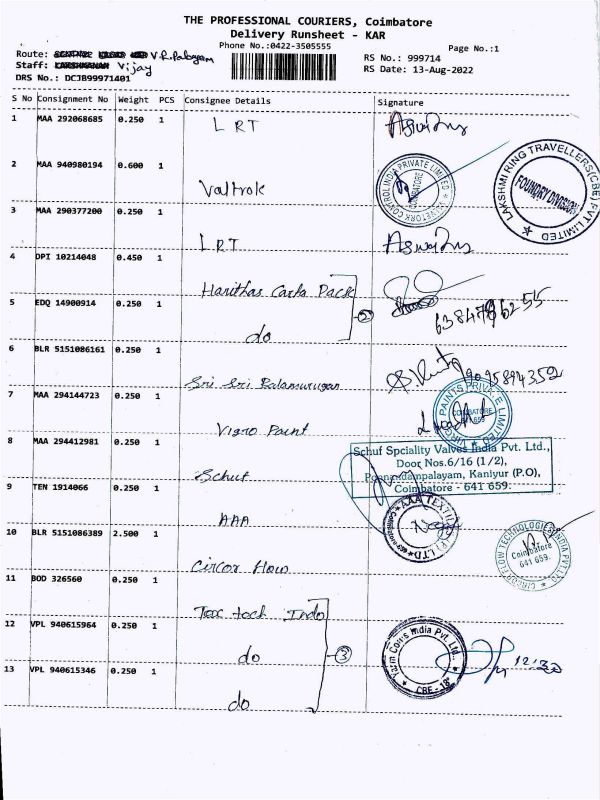 THE PROFESSIONAL COURIERS, Coimbatore
Delivery Runsheet - KAR
Phone No.:0422-3505555
Page No.:1
Route: V.R.Palayam
RS No.: 999714
Staff: Vijay
RS Date: 13-Aug-2022
DRS No.: DCJB99971401
S No Consignment No Weight PCS Consignee Details Signature
1 MAA 292068685 0.250 1 LRT
2 MAA 940980194 0.600 1 Valtrok
3 MAA 290377200 0.250 1 LRT
LAKSHMI RING TRAVELLERS(CBE) PVT LIMITED
FOUNDRY DIVISION
4 DPI 10214048 0.450 1 Harithas Carta Pack
5 EDQ 14900914 0.250 1 do
6 BLR 5151086161 0.250 1 Sri Sri Balamurugan
7 MAA 294144723 0.250 1 Vigro Paint
8 MAA 294412981 0.250 1 Schuf
Schuf Spciality Valves India Pvt. Ltd.,
Door Nos.6/16 (1/2),
Kaniyur (P.O),
Coimbatore - 641 659.
9 TEN 1914066 0.250 1 AAA
10 BLR 5151086389 2.500 1 Circor Flow
CIRCOR FLOW TECHNOLOGIES INDIA PVT LTD
Coimbatore
641 659.
11 BOD 326560 0.250 1 Tex tech Indo
12 VPL 940615964 0.250 1 do
3
12:30
13 VPL 940615346 0.250 1 do
CBE - 18